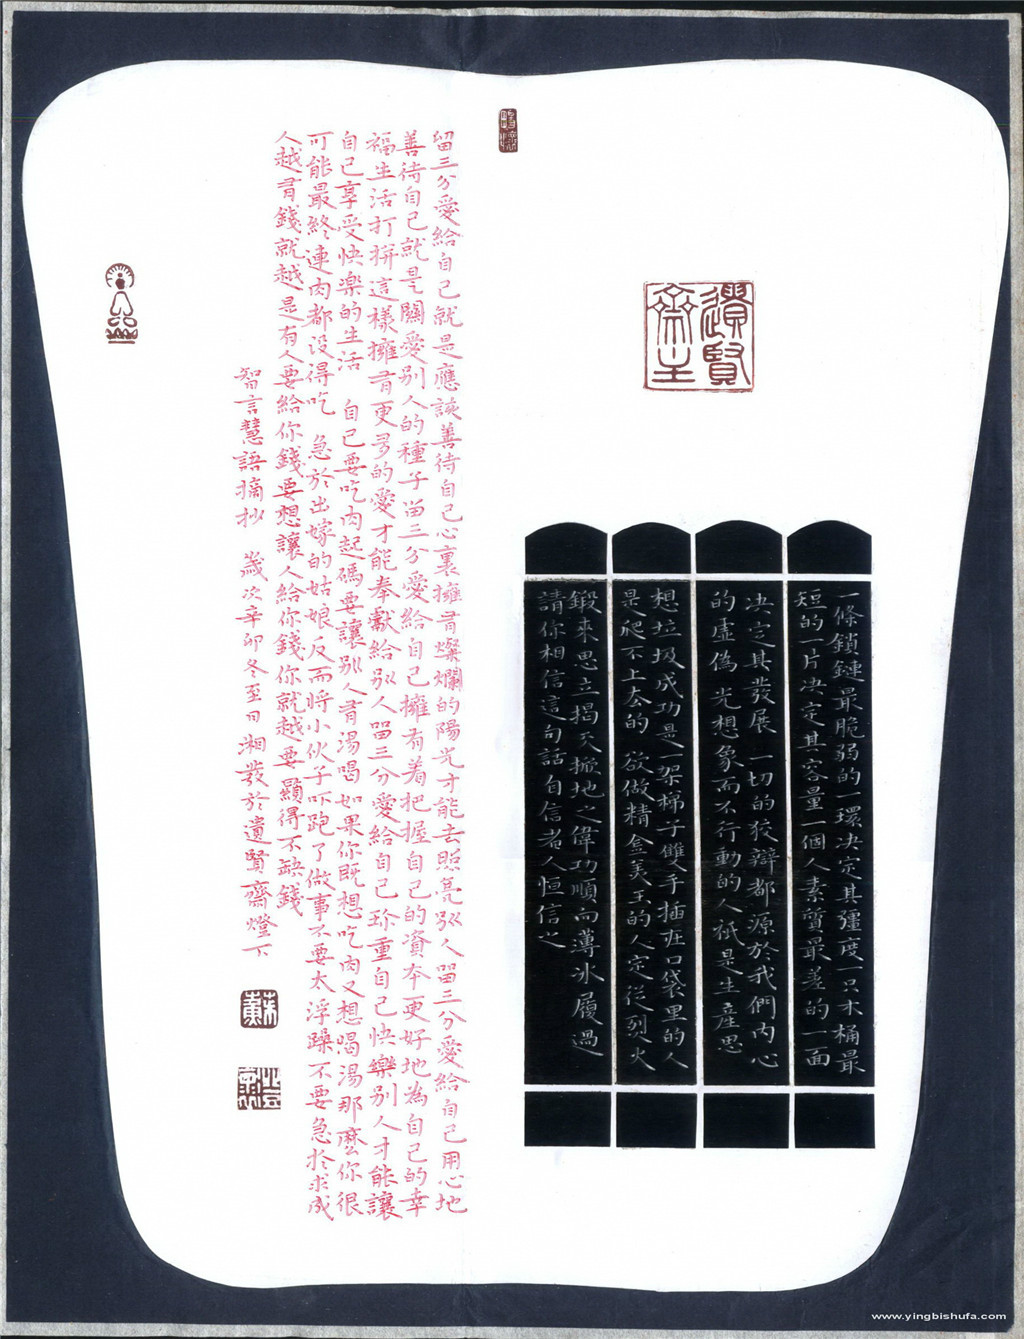 遺賢
齋主
一條鎖鏈最脆弱的一環決定其彊度一只木桶最
短的一片決定其容量一個人素質最差的一面
決定其發展 一切的狡辯都源於我們內心
的虛偽 光想象而不行動的人祇是生產思
想垃圾成功是一架梯子雙手插在口袋里的人
是爬不上去的 欲做精金美玉的人定從烈火
鍛來思立揭天掀地之偉功順向薄冰履過
請你相信這句話自信者人恒信之
留三分愛給自己就是應該善待自己心裏擁有燦爛的陽光才能去照亮別人留三分愛給自己用心地
善待自己就是關愛別人的種子留三分愛給自己擁有着把握自己的資本更好地為自己的幸
福生活打拼這樣擁有更多的愛才能奉獻給別人留三分愛給自己珍重自己快樂別人才能讓
自己享受快樂的生活 自己要吃肉起碼要讓別人有湯喝如果你既想吃肉又想喝湯那麼你很
可能最終連肉都没得吃 急於出嫁的姑娘反而將小伙子吓跑了做事不要太浮躁不要急於求成
人越有錢就越是有人要給你錢要想讓人給你錢你就越要顯得不缺錢
智言慧語摘抄 歲次辛卯冬至日湘發於遺賢齋燈下
www.yingbishufa.com